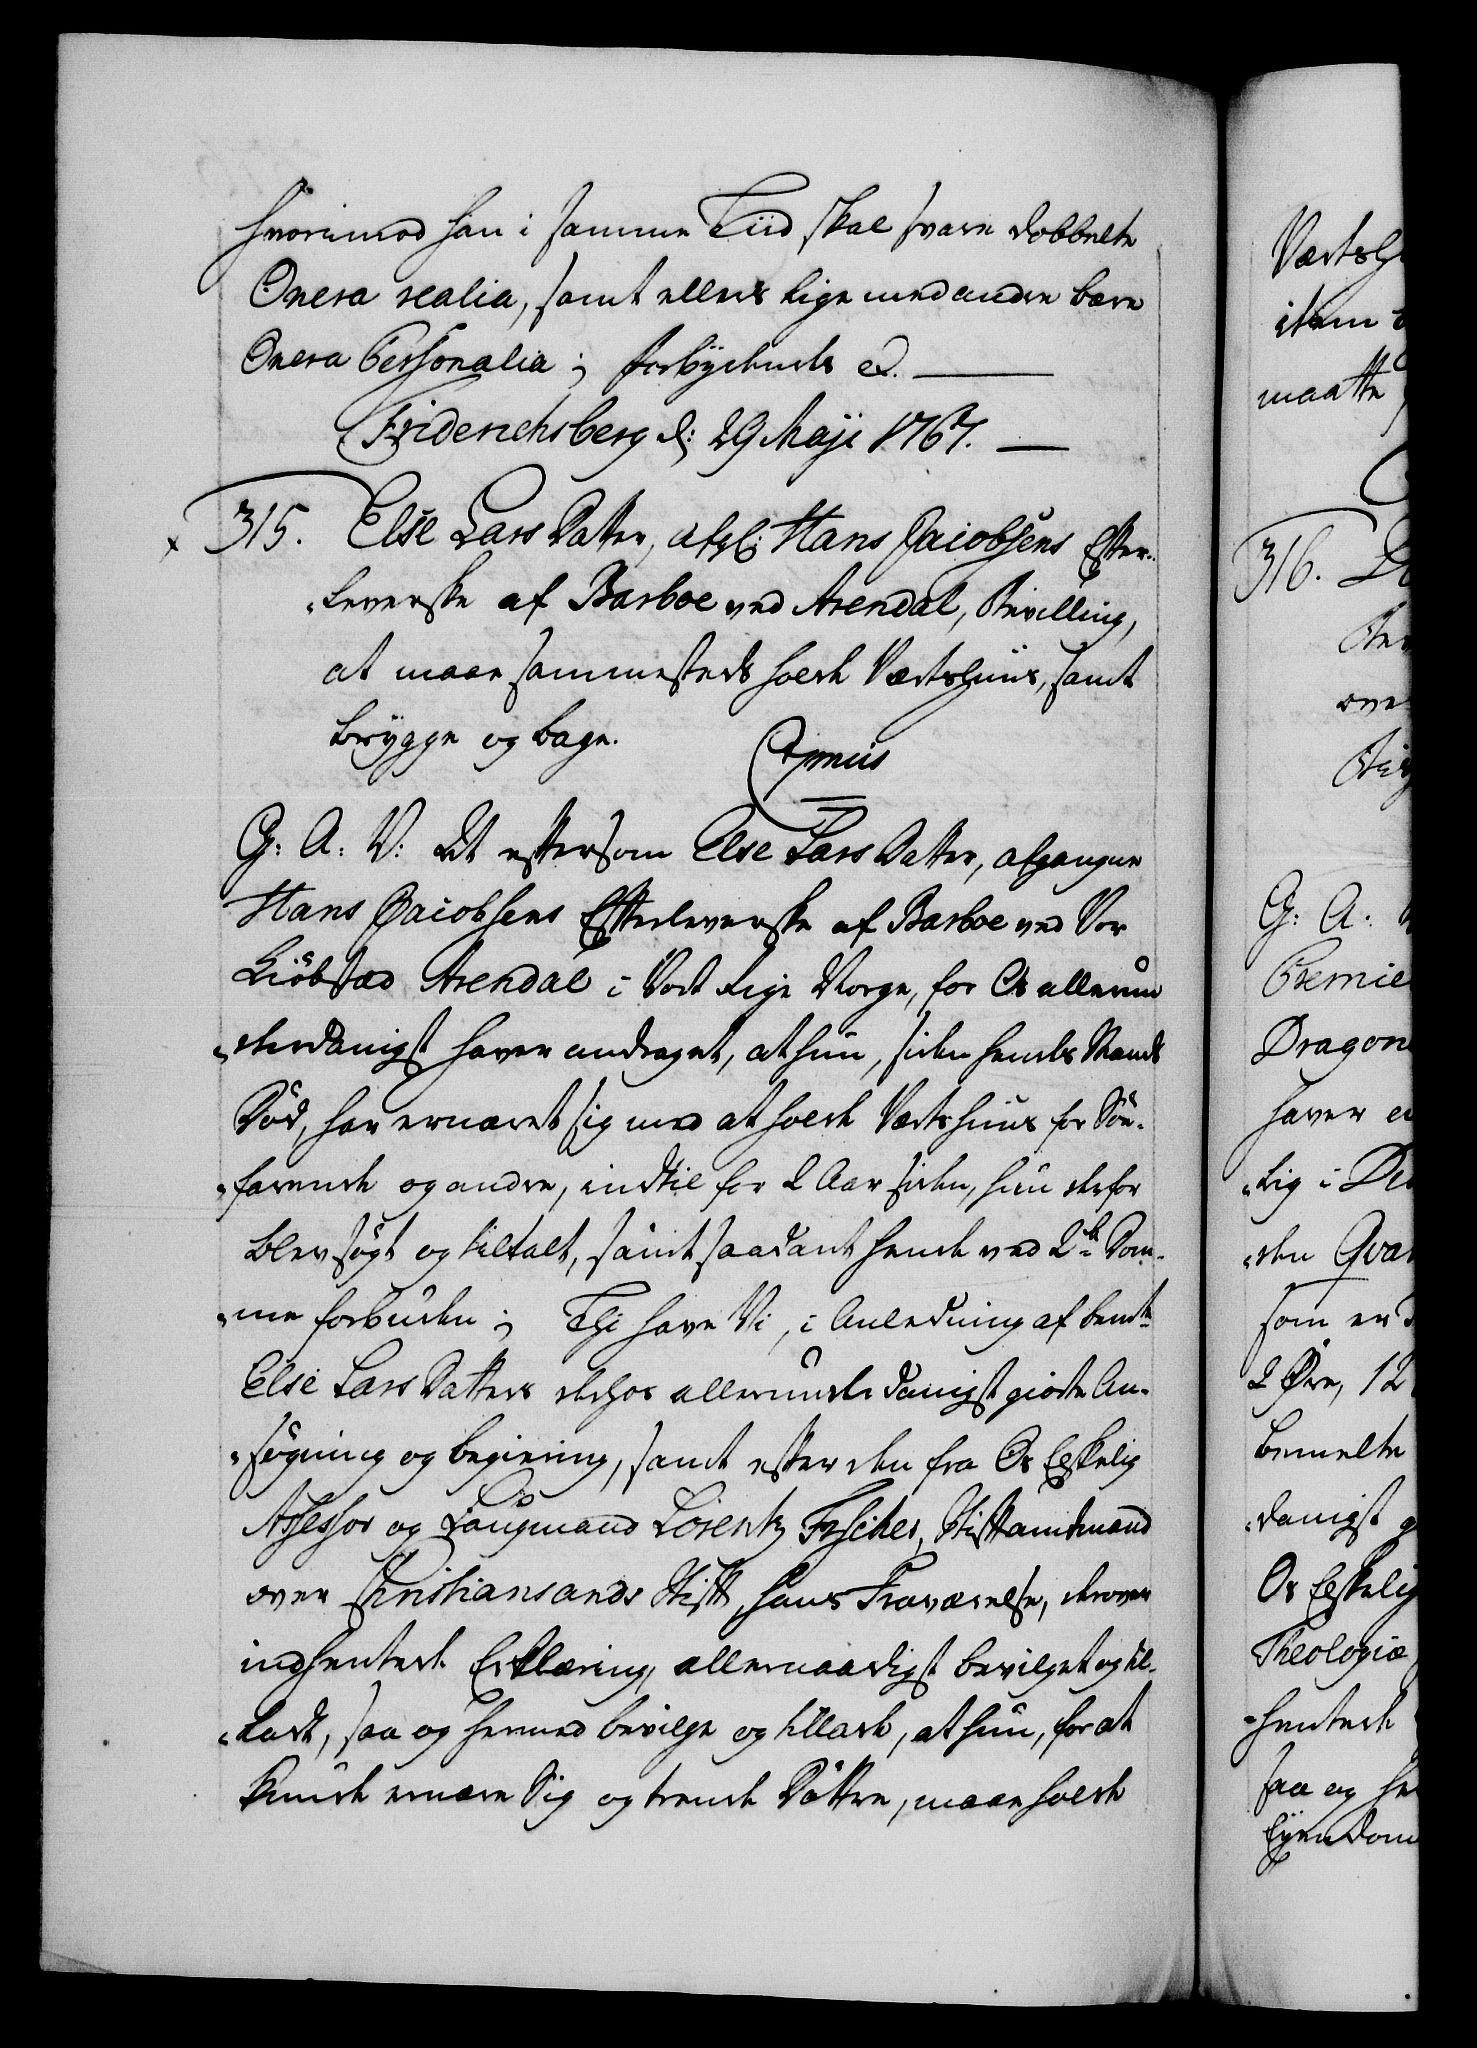 hvorimod han i samme Tiid skal svare dobbelte
Onera realia, samt ellers lige med andre bære
Onera Personalia; forbydendes &.
Friderichsberg d: 29 Maji 1767.
315. Else Lars Datter, afg: Hans Jacobsens Efter-
leverske af Barboe ved Arendal, Bevilling,
at maae sammesteds holde Vertshuus, samt
brygge og bage.
Gratis
G: A: V: At eftersom Else Lars Datter, afgangne
Hans Jacobsens Efterleverske af Barboe ved Vor
Kiöbstæd Arendal i Vort Rige Norge, for Os allerun-
derdanigst haver andraget, at hun, siden hendes Mands
Död, har ernæret sig med at holde Vertshuus for Söe-
farende og andre, indtil for 2 Aar siden, hun derfor
blev sögt og tiltalt, samt saadant hende ved 2de Dom-
me forbuden; Thi have Vi, i Anledning af bemte
Else Lars Datters derhos allerunderdanigst giorte An-
søgning og begiering, samt efter den fra Os Elskelig
Assessor og Laugmand Lorentz Fescher, Stiftamtmand
over Christiansands Stift, hans Fraværelse, derover
indhentede Erklæring, allernaadigst bevilget og til-
ladt, saa og hermed bevilge og tillade, at hun, for at
kunde ernære Sig og trende Döttre, maae holde
Vertshu
item
maatte
316.
G: A:
Premie
Dragon
haver
lig i
den Qvar
som er
2 Øre, 12
bemelte
danigst
Os Elskelig
Theologiæ
hentede
saa og he
Eyendom